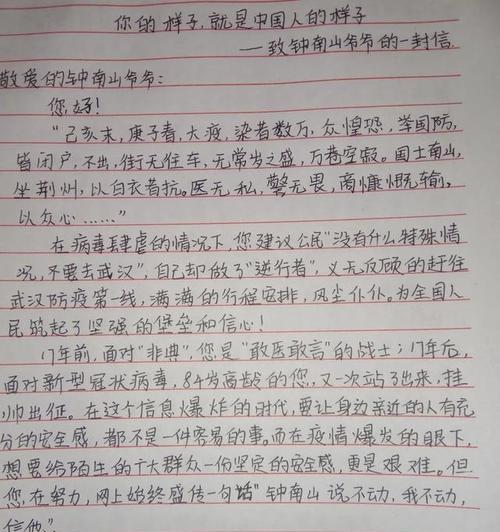 你的样子,就是中国人的样子
——致钟南山爷爷的一封信
敬爱的钟南山爷爷:
您好!
“己亥末,庚子春,大疫,染者数万,众惶恐,举国防,
皆闭户,不出,街无住车,无常岁之盛,万巷空寂。国士南山,
坐荆州,以白衣者抗。医无私,警无畏,商慷慨输。
以众心……”
在病毒肆虐的情况下,您建议公民“没有什么特殊情
况,不要去武汉”,自己却做了“逆行者”,义无反顾的赶往
武汉防疫第一线,满满的行程安排,风尘仆仆。为全国人
民筑起了坚强的堡垒和信心!
17年前,面对“非典”,您是“敢医敢言”的战士;17年后,
面对新型冠状病毒,84岁高龄的您,又一次站了出来,挂
帅出征。在这个信息爆炸的时代,要让身边亲近的人有充
分的安全感,都不是一件容易的事。而在疫情爆发的眼下,
想要给陌生的广大群众一份坚定的安全感,更是艰难。但
您在努力,网上始终盛传一句话“钟南山说不动,我不动,
信他”